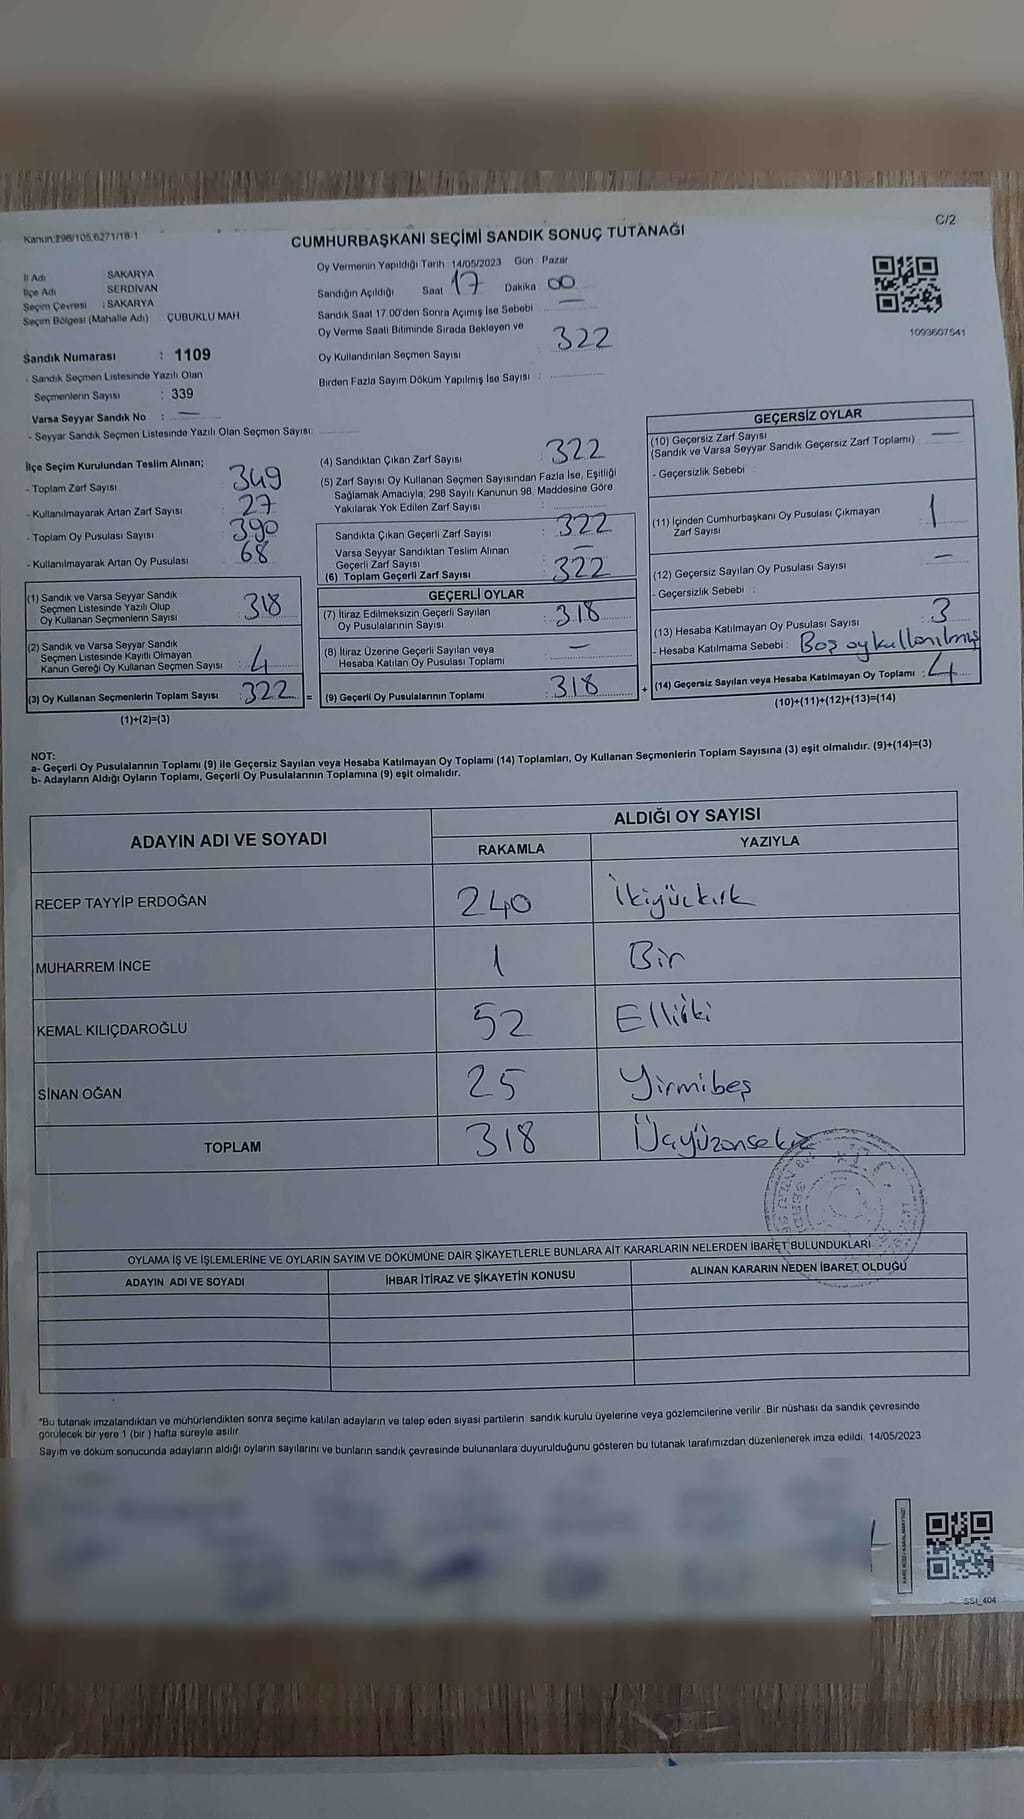 Kanun:298/105,6271/18-1
C/2
CUMHURBAŞKANI SEÇİMİ SANDIK SONUÇ TUTANAĞI
İl Adı SAKARYA
İlçe Adı SERDİVAN
Seçim Çevresi : SAKARYA
Seçim Bölgesi (Mahalle Adı) ÇUBUKLU MAH
Oy Vermenin Yapıldığı Tarih 14/05/2023 Gün : Pazar
Sandığın Açıldığı Saat 17 Dakika 00
Sandık Saat 17.00'den Sonra Açımış İse Sebebi —
Oy Verme Saati Bitiminde Sırada Bekleyen ve
Oy Kullandırılan Seçmen Sayısı : 322
Birden Fazla Sayım Döküm Yapılmış İse Sayısı :
1093607541
Sandık Numarası : 1109
- Sandık Seçmen Listesinde Yazılı Olan
Seçmenlerin Sayısı : 339
Varsa Seyyar Sandık No : —
- Seyyar Sandık Seçmen Listesinde Yazılı Olan Seçmen Sayısı:
İlçe Seçim Kurulundan Teslim Alınan;
- Toplam Zarf Sayısı 349
- Kullanılmayarak Artan Zarf Sayısı 27
- Toplam Oy Pusulası Sayısı 390
- Kullanılmayarak Artan Oy Pusulası 68
(1) Sandık ve Varsa Seyyar Sandık
Seçmen Listesinde Yazılı Olup
Oy Kullanan Seçmenlerin Sayısı : 318
(2) Sandık ve Varsa Seyyar Sandık
Seçmen Listesinde Kayıtlı Olmayan
Kanun Gereği Oy Kullanan Seçmen Sayısı : 4
(3) Oy Kullanan Seçmenlerin Toplam Sayısı : 322 =
(1)+(2)=(3)
(4) Sandıktan Çıkan Zarf Sayısı : 322
(5) Zarf Sayısı Oy Kullanan Seçmen Sayısından Fazla İse, Eşitliği
Sağlamak Amacıyla; 298 Sayılı Kanunun 98. Maddesine Göre
Yakılarak Yok Edilen Zarf Sayısı :
Sandıkta Çıkan Geçerli Zarf Sayısı : 322
Varsa Seyyar Sandıktan Teslim Alınan
Geçerli Zarf Sayısı : —
(6) Toplam Geçerli Zarf Sayısı : 322
GEÇERLİ OYLAR
(7) İtiraz Edilmeksizin Geçerli Sayılan
Oy Pusulalarının Sayısı : 318
(8) İtiraz Üzerine Geçerli Sayılan veya
Hesaba Katılan Oy Pusulası Toplamı : —
(9) Geçerli Oy Pusulalarının Toplamı : 318 +
GEÇERSİZ OYLAR
(10) Geçersiz Zarf Sayısı : —
(Sandık ve Varsa Seyyar Sandık Geçersiz Zarf Toplamı)
- Geçersizlik Sebebi :
(11) İçinden Cumhurbaşkanı Oy Pusulası Çıkmayan
Zarf Sayısı : 1
(12) Geçersiz Sayılan Oy Pusulası Sayısı : —
- Geçersizlik Sebebi :
(13) Hesaba Katılmayan Oy Pusulası Sayısı : 3
- Hesaba Katılmama Sebebi : Boş oy kullanılmış
(14) Geçersiz Sayılan veya Hesaba Katılmayan Oy Toplamı : 4
(10)+(11)+(12)+(13)=(14)
NOT:
a- Geçerli Oy Pusulalarının Toplamı (9) ile Geçersiz Sayılan veya Hesaba Katılmayan Oy Toplamı (14) Toplamları, Oy Kullanan Seçmenlerin Toplam Sayısına (3) eşit olmalıdır. (9)+(14)=(3)
b- Adayların Aldığı Oyların Toplamı, Geçerli Oy Pusulalarının Toplamına (9) eşit olmalıdır.
ADAYIN ADI VE SOYADI ALDIĞI OY SAYISI
RAKAMLA YAZIYLA
RECEP TAYYİP ERDOĞAN 240 İkiyüzkırk
MUHARREM İNCE 1 Bir
KEMAL KILIÇDAROĞLU 52 Elliiki
SİNAN OĞAN 25 Yirmibeş
TOPLAM 318 Üçyüzonsekiz
OYLAMA İŞ VE İŞLEMLERİNE VE OYLARIN SAYIM VE DÖKÜMÜNE DAİR ŞİKAYETLERLE BUNLARA AİT KARARLARIN NELERDEN İBARET BULUNDUKLARI
ADAYIN ADI VE SOYADI İHBAR İTİRAZ VE ŞİKAYETİN KONUSU ALINAN KARARIN NEDEN İBARET OLDUĞU
*Bu tutanak imzalandıktan ve mühürlendikten sonra seçime katılan adayların ve talep eden siyasi partilerin sandık kurulu üyelerine veya gözlemcilerine verilir. Bir nüshası da sandık çevresinde
görülecek bir yere 1 (bir) hafta süreyle asılır
Sayım ve döküm sonucunda adayların aldığı oyların sayılarını ve bunların sandık çevresinde bulunanlara duyurulduğunu gösteren bu tutanak tarafımızdan düzenlenerek imza edildi. 14/05/2023
SSI_404